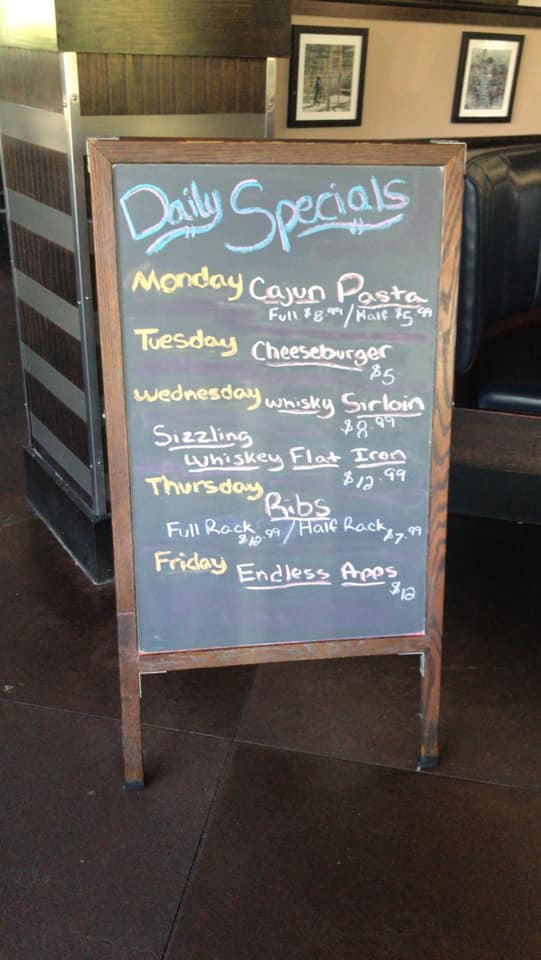 Daily Specials
Monday Cajun Pasta
Full $8.99/Half $5.99
Tuesday Cheeseburger
$5
Wednesday Whisky Sirloin
$8.99
Sizzling
Whiskey Flat Iron
$12.99
Thursday
Ribs
Full Rack $12.99/Half Rack $7.99
Friday Endless Apps
$12